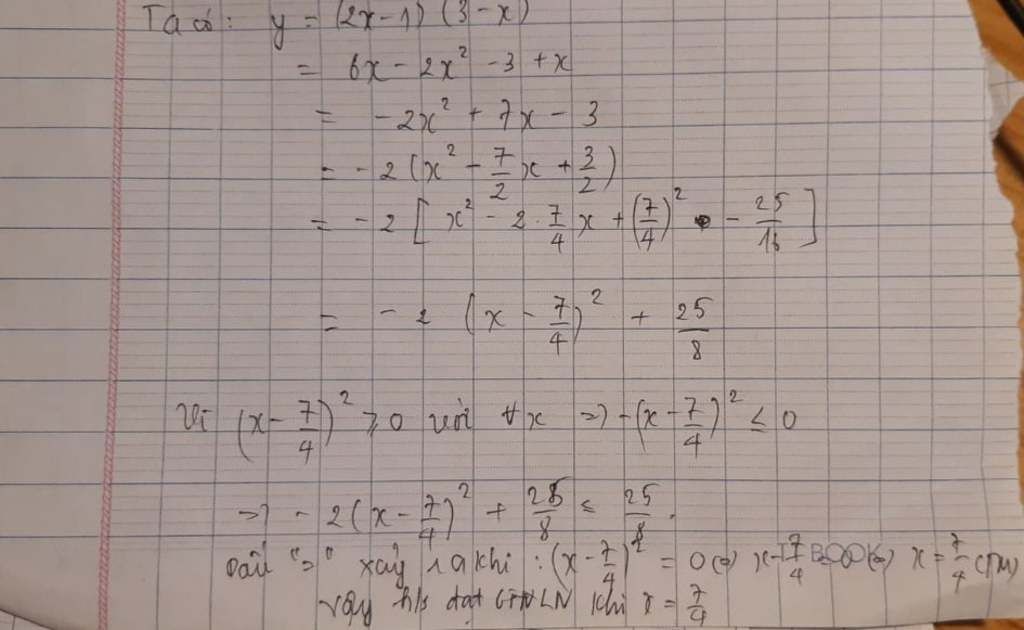 Ta có: y = (2x - 1) (3 - x)
= 6x - 2x² - 3 + x
= -2x² + 7x - 3
= -2 (x² - 7/2 x + 3/2)
= -2 [ x² - 2 . 7/4 x + (7/4)² - 25/16 ]
= -2 (x - 7/4)² + 25/8
Vì (x - 7/4)² ≥ 0 với ∀x => -(x - 7/4)² ≤ 0
=> -2(x - 7/4)² + 25/8 ≤ 25/8.
Dấu "=" xảy ra khi : (x - 7/4)² = 0 (=) x - 7/4 (=) x = 7/4 (TM)
Vậy h/s đạt GTLN khi x = 7/4